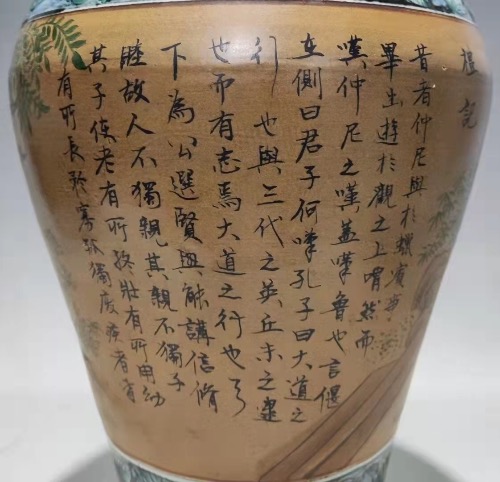 禮記
昔者仲尼與於蠟賓事
畢出遊於觀之上喟然而
嘆仲尼之嘆蓋嘆魯也言偃
在側曰君子何嘆孔子曰大道之
行也與三代之英丘未之逮
也而有志焉大道之行也
下為公選賢與能講信脩
睦故人不獨親其親不獨子
其子使老有所終壯有所用幼
有所長矜寡孤獨廢疾者皆